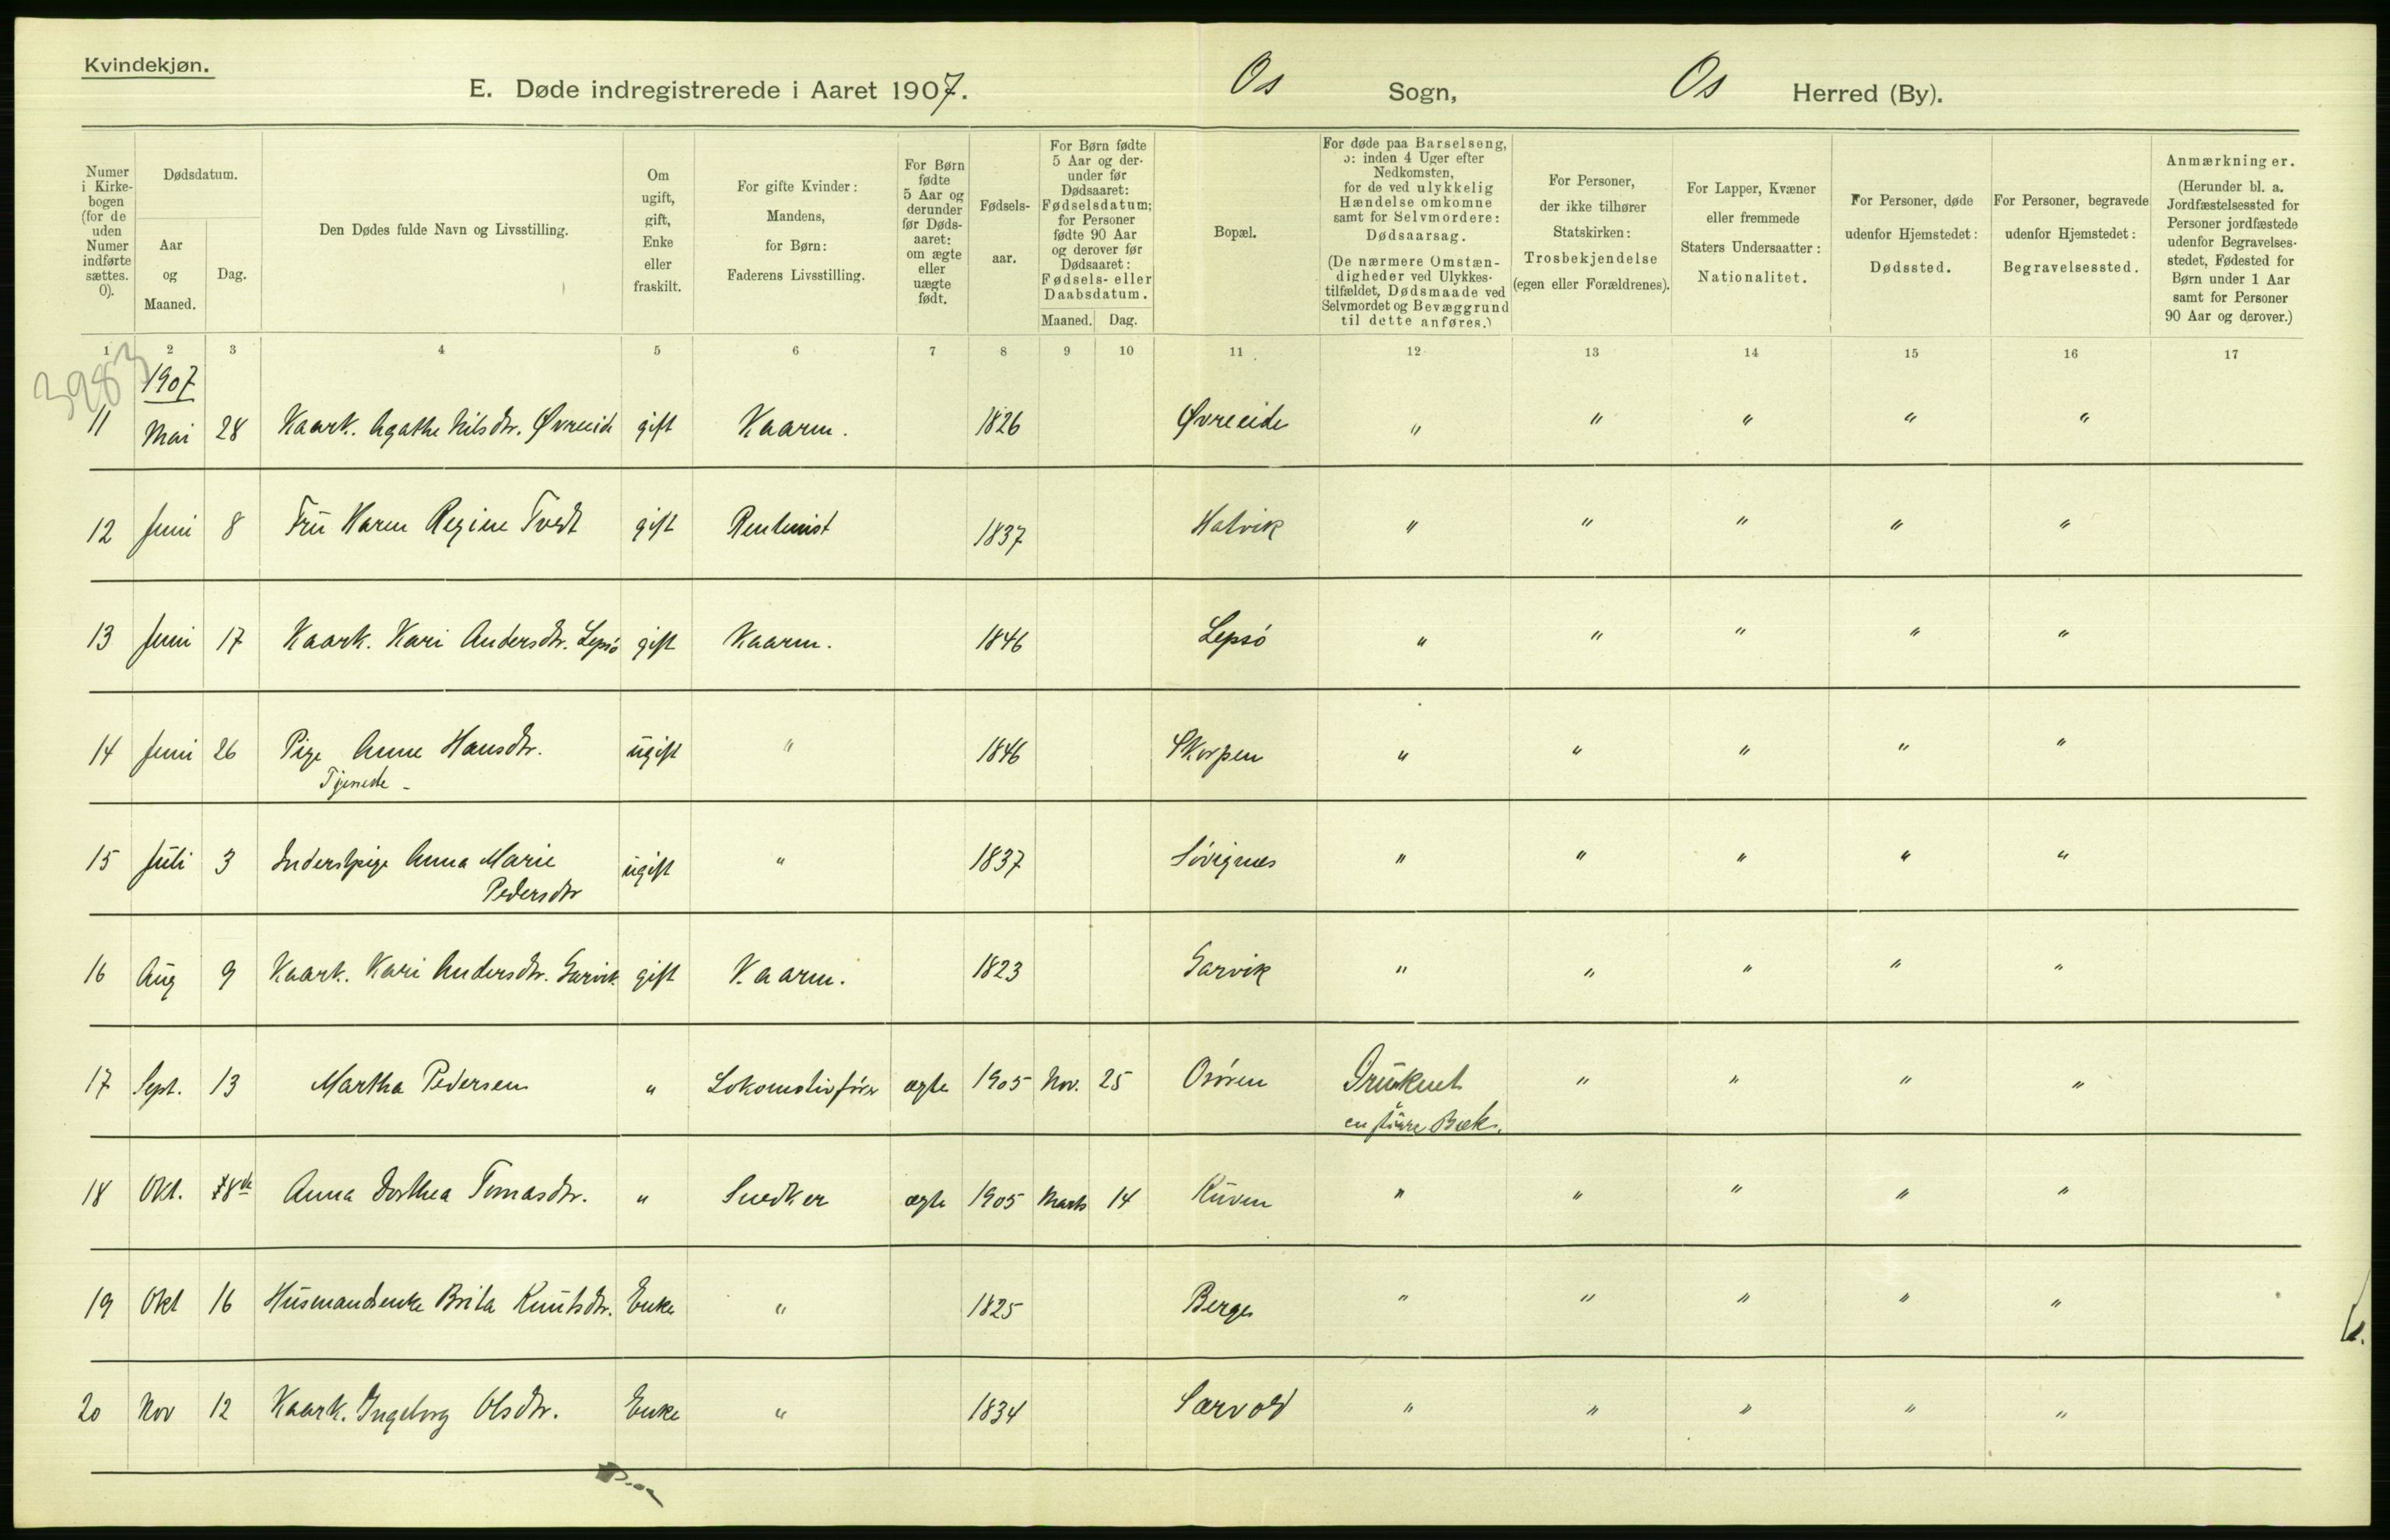 Kvindekjøn.
E. Døde indregistrerede i Aaret 1907. Os Sogn, Os Herred (By).
Numer i Kirke-bogen (for de uden Numer indførte sættes. 0).
Dødsdatum.
Aar og Maaned.
Dag.
Den Dødes fulde Navn og Livsstilling.
Om ugift, gift, Enke eller fraskilt.
For gifte Kvinder: Mandens, for Børn: Faderens Livsstilling.
For Børn fødte 5 Aar og derunder før Døds-aaret: om ægte eller uægte født.
Fødsels-aar.
For Børn fødte 5 Aar og der-under før Dødsaaret: Fødselsdatum; for Personer fødte 90 Aar og derover før Dødsaaret: Fødsels- eller Daabsdatum.
Maaned. Dag.
Bopæl.
For døde paa Barselseng, ɔ: inden 4 Uger efter Nedkomsten, for de ved ulykkelig Hændelse omkomne samt for Selvmordere: Dødsaarsag. (De nærmere Omstæn-digheder ved Ulykkes-tilfældet, Dødsmaade ved Selvmordet og Bevæggrund til dette anføres.)
For Personer, der ikke tilhører Statskirken: Trosbekjendelse (egen eller Forældrenes).
For Lapper, Kvæner eller fremmede Staters Undersaatter: Nationalitet.
For Personer, døde udenfor Hjemstedet: Dødssted.
For Personer, begravede udenfor Hjemstedet: Begravelsessted.
Anmærkninger. (Herunder bl. a. Jordfæstelsessted for Personer jordfæstede udenfor Begravelses-stedet, Fødested for Børn under 1 Aar samt for Personer 90 Aar og derover.)
1 2 3 4 5 6 7 8 9 10 11 12 13 14 15 16 17
3983
1907
11 Mai 28 Kaark. Agathe Nilsdtr. Øvreeide gift Kaarm. 1826 Øvreeide " " " " "
12 Juni 8 Fru Karen Regine Tvedt gift Rentenist 1837 Hatvik " " " " "
13 Juni 17 Kaark. Kari Andersdtr. Lepsø gift Kaarm. 1846 Lepsø " " " " "
14 Juni 26 Pige Anne Hansdtr. ugift " 1846 Skorpen " " " " "
Tjenede -
15 Juli 3 Inderstpige Anna Marie ugift " 1837 Søvignes " " " " "
Pedersdtr
16 Aug 9 Kaark. Kari Andersdtr. Garvik gift Kaarm. 1823 Garvik " " " " "
17 Sept. 13 Martha Pedersen " Lokomotivfører ægte 1905 Nov. 25 Osøren Druknet " " " "
en større Bæk.
18 Okt. 8de Anna Dorthea Tomasdtr. " Snedker ægte 1905 Marts 14 Kuven " " " " "
19 Okt 16 Husmandsenke Brita Knutsdtr. Enke " 1825 Berge " " " " "
20 Nov 12 Kaark. Ingeborg Olsdtr. Enke " 1834 Særvold " " " " "